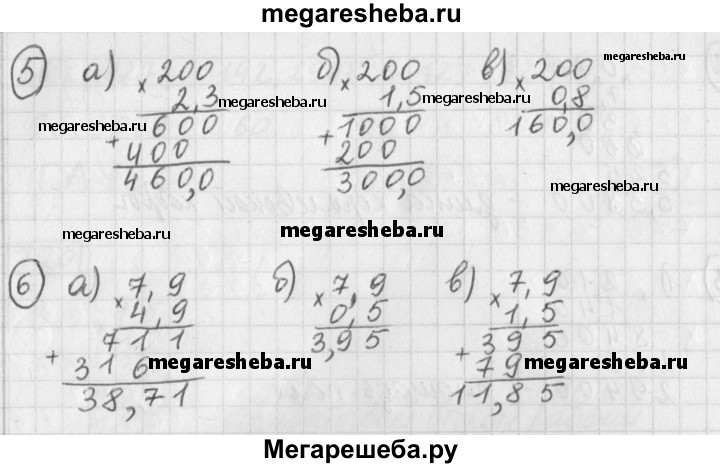 megaresheba.ru
5 а) 200 б) 200 в) 200 megaresheba.ru
× 2,3 megaresheba.ru × 1,5 megaresheba.ru × 0,8
megaresheba.ru 600 1000 160,0
+ 400 + 200
460,0 300,0 megaresheba.ru
megaresheba.ru megaresheba.ru
6 а) 7,9 б) 7,9 в) 7,9
× 4,9 × 0,5 × 1,5
711 3,95 395
+ 316 megaresheba.ru + 79 megaresheba.ru
38,71 11,85
Мегарешеба.ру